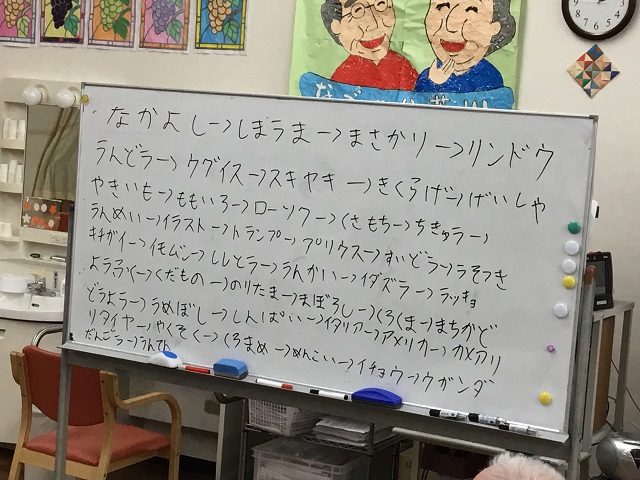 なかよし→しぼうま→まさかり→リンドウ
うんどう→ウグイス→スキヤキ→きくらげ→げいしゃ
やきいも→ももいろ→ローソク→くさもち→ちきゅう→
うんめい→イラスト→トランプ→プリウス→すいどう→うそつき
キチガイ→イモムシ→ししとう→うんかい→イタズラ→ラッキョ
ようふく→くだもの→のりたま→まぼろし→くろくま→まちかど
どうよう→うめぼし→しんぱい→イタリア→アメリカ→カメアリ
リタイヤ→やくそく→くろまめ→めんこい→イチョウ→ウガンダ
だんごう→うんてん